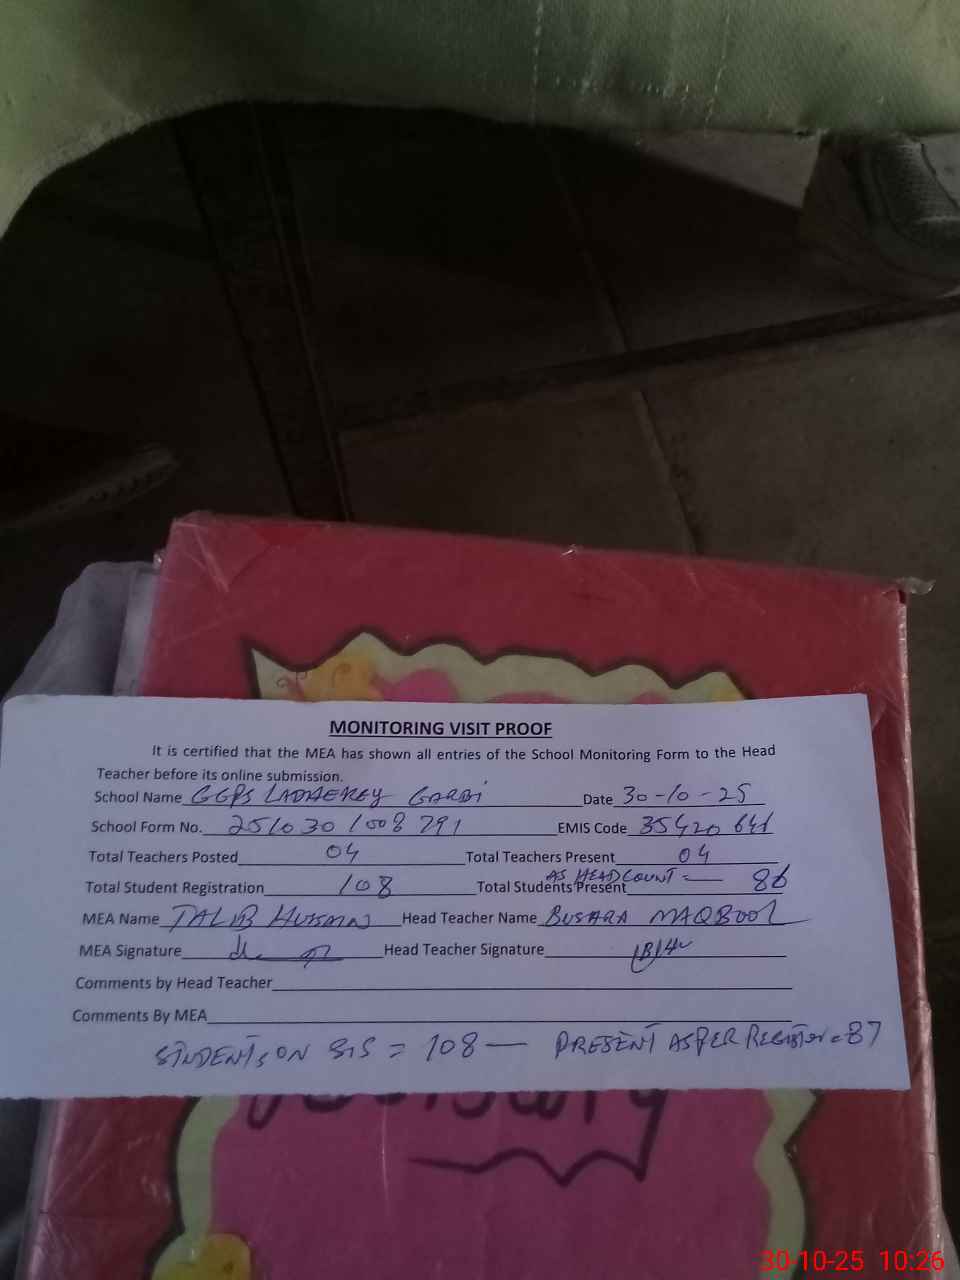 MONITORING VISIT PROOF
It is certified that the MEA has shown all entries of the School Monitoring Form to the Head
Teacher before its online submission.
School Name GGPS LADHEREY GARBI Date 30-10-25
School Form No. 251030 1008 791 EMIS Code 35420 641
Total Teachers Posted 04 Total Teachers Present 04
Total Student Registration 108 Total Students Present AS HEADCOUNT = 86
MEA Name TALIB HUSSAIN Head Teacher Name BUSHRA MAQBOOL
MEA Signature Head Teacher Signature
Comments by Head Teacher
Comments By MEA
STUDENTS ON SIS = 108 — PRESENT AS PER REGISTER = 87
30-10-25 10:26